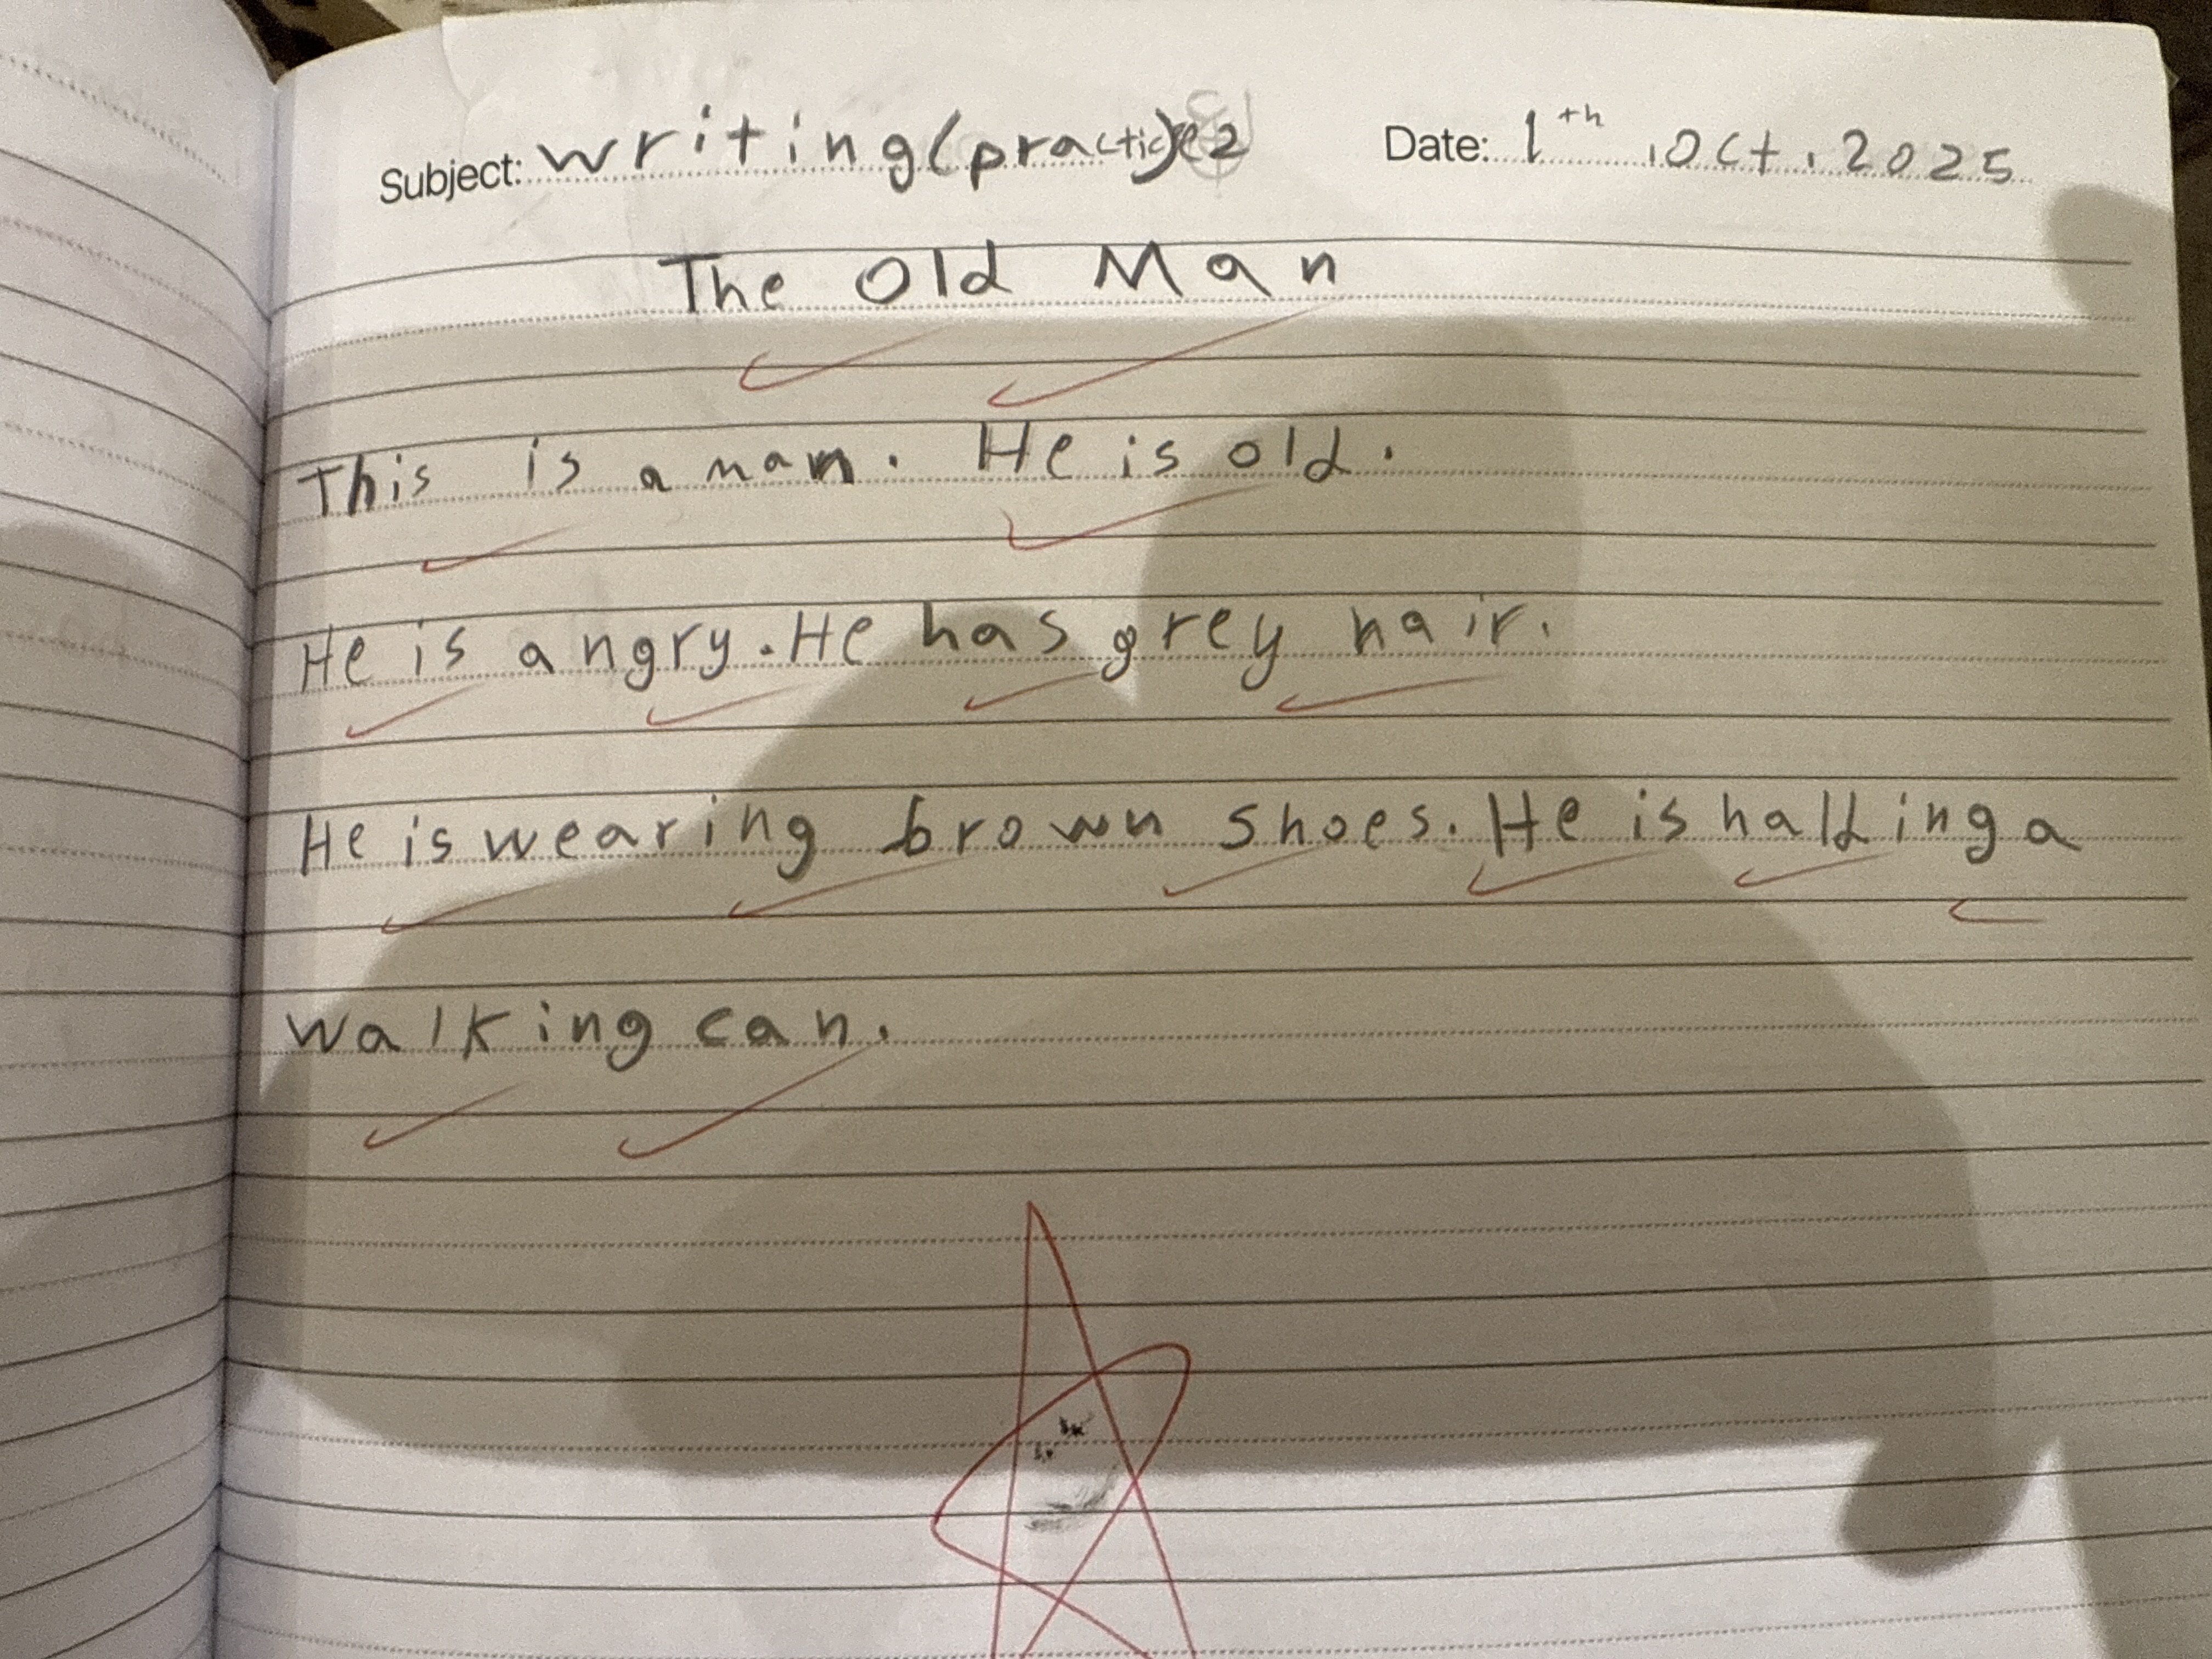 Subject: writing(practice2
Date: 1th .Oct.2025
The Old Man
This is a man. He is old.
He is angry. He has grey hair.
He is wearing brown shoes. He is halding a
walking can.